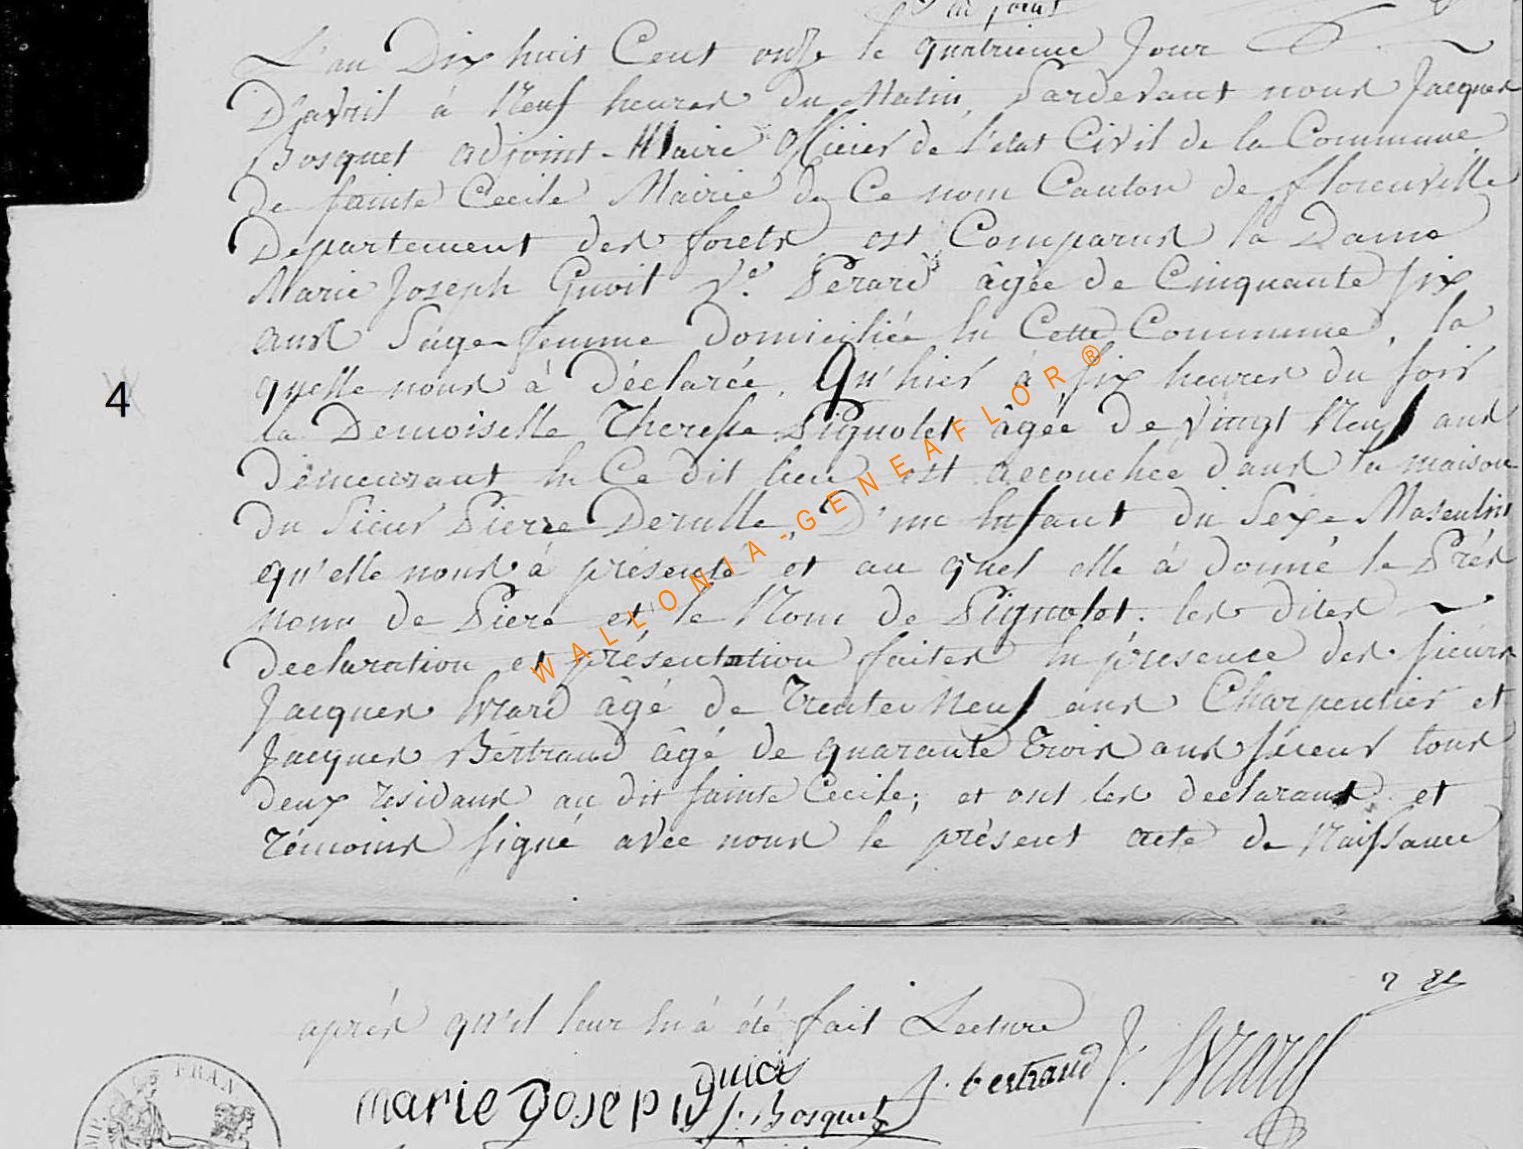 adjoint
L'an Dix huit Cent onze le quatrieme Jour
D'avril à Neuf heures du Matin, Pardevant nous Jacques
Bosquet adjoint-Maire Officier de l'etat Civil de la Commune
De Sainte Cecile Mairie de Ce nom Canton de florenville
Departement des forets est Comparus la Dame
Marie Joseph Guoit Ve. Perard âgée de Cinquante six
ans Sage-femme Domiciliée en Cette Commune, la
quelle nous à Déclarée, Qu'hier à six heures du soir
la Demoiselle Theresse Pignolet âgée de vingt Neuf ans
Demeurant en Ce dit lieu est accouchée dans la maison
du Sieur Pierre Derulle, D'une Enfant du Sexe Masculin
qu'elle nous à présenté et au quel elle à donné le Prés
noms de Piere et le Nom de Pignolet. les dites
declaration et présentation faites en présence des sieurs
Jacques Evrard âgé de Trente Neuf ans Charpentier et
Jacques Bertrand âgé de quarante Trois ans sieur tous
deux résidans au dit Sainte Cecile; et ont les declarans et
Témoins signé avec nous le présent acte de Naissance
4
WALLONIA-GENEAFLOR®
après qu'il leur en à été fait Lecture
FRAN
marie Joseph
J. Bosquet
J. bertrand
J. Evrard